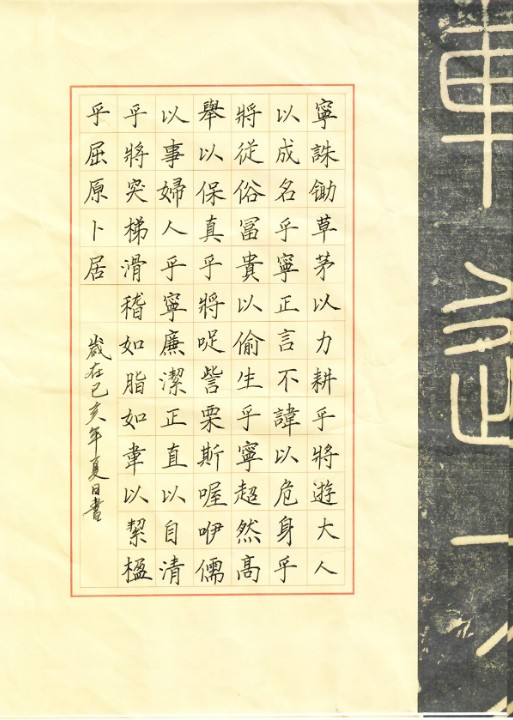 寧誅锄草茅以力耕乎將遊大人
以成名乎寧正言不諱以危身乎
將從俗冨貴以偷生乎寧超然高
舉以保真乎將哫訾栗斯喔咿儒
以事婦人乎寧廉潔正直以自清
乎將突梯滑稽如脂如韋以絜楹
乎屈原卜居
歲在己亥年夏日書